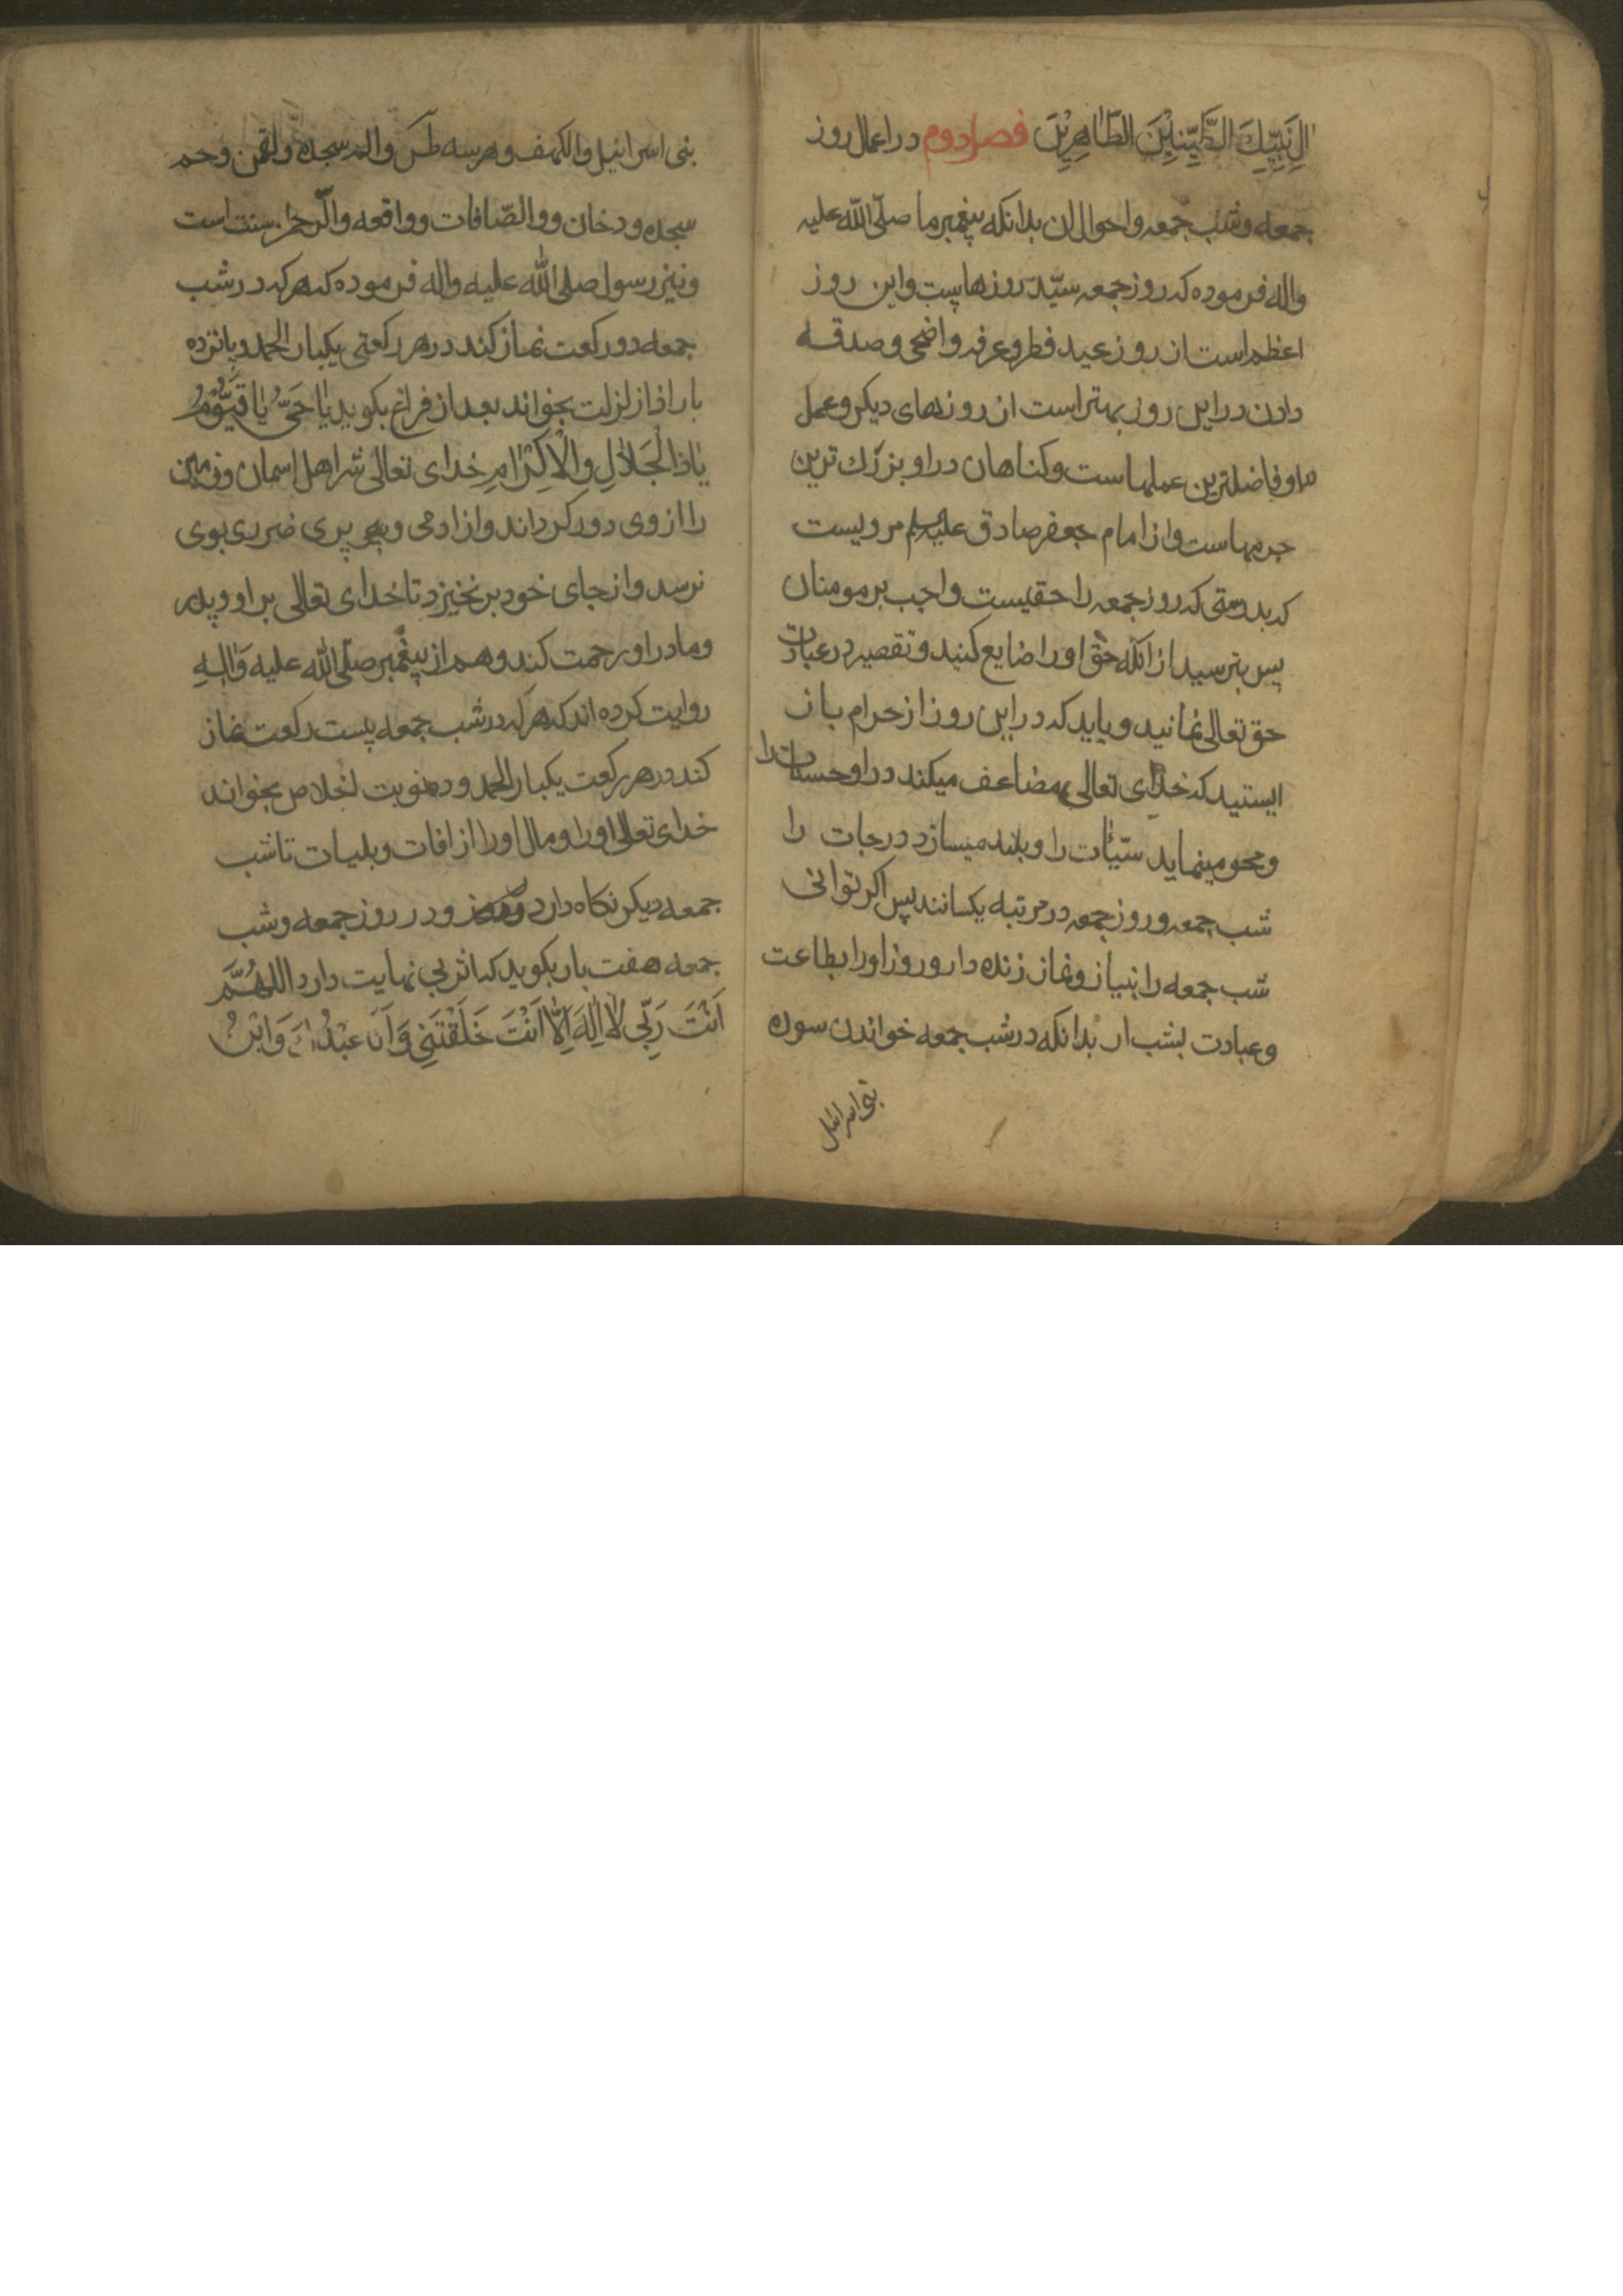 اٰلِ نَبِيِّكَ الطَّيِّبِيْنَ الطَّاهِرِيْنَ فصل دوم در اعمال روز
جمعه وشب جمعه واحوال ان بدانکه پیغمبر ما صلّی الله علیه
واله فرموده که روز جمعه سیّد روزهاست واین روز
اعظم است از روز عید فطر وعرفه واضحی وصدقه
دادن در این روز بهتر است از روزهای دیکر وعمل
در او فاضلترین عملهاست وکناهان در او بزرک ترین
جرمهاست واز امام جعفر صادق علیه السلم مرویست
که بدرستی که روز جمعه را حقیست واجب بر مومنان
پس بترسید از انکه حق او را ضایع کنید وتقصیر در عبادت
حق تعالی نمائید وباید که در این روز از حرام باز
ایستید که خدای تعالی مضاعف میکند در او حسنات را
ومحو مینماید سیّئات را وبلند میسازد درجات را
شب جمعه وروز جمعه در مرتبه یکسانند پس اکر توانی
شب جمعه را بنیاز ونماز زنده دار وروز او را بطاعت
وعبادت بشب ار بدانکه در شب جمعه خواندن سوره
بنی اسرائیل
بنی اسرائیل والکهف وهر سه طس والم سجده ولقمن وحم
سجده ودخان ووالصّافات وواقعه والرّحمن سنت است
ونیز رسول صلی الله علیه واله فرموده که هر که در شب
جمعه دو رکعت نماز کند در هر رکعتی یکبار الحمد وپانزده
بار اذا زلزلت بخواند بعد از فراغ بکوید یٰا حَیُّ یٰا قَیُّوْمُ
یٰا ذَا الْجَلاٰلِ وَالْاِکْرٰامِ خدای تعالی شر اهل اسمان وزمین
را از وی دور کرداند واز ادمی وپری ضرری بوی
نرسد واز جای خود برنخیزد تا خدای تعالی بر او وپدر
ومادر او رحمت کند وهم از پیغمبر صلّی الله علیه وَاٰلِهِ
روایت کرده اند که هر که در شب جمعه بیست رکعت نماز
کند در هر رکعت یکبار الحمد وده نوبت اخلاص بخواند
خدای تعالی او را ومال او را از افات وبلیات تا شب
جمعه دیکر نکاه دارد ودر روز جمعه وشب
جمعه هفت بار بکوید که اثر بی نهایت دارد اللّٰهُمَّ
اَنْتَ رَبِّی لاٰ اِلٰهَ اِلّاٰ اَنْتَ خَلَقْتَنِی وَاَنَا عَبْدُکَ وَابْنُ